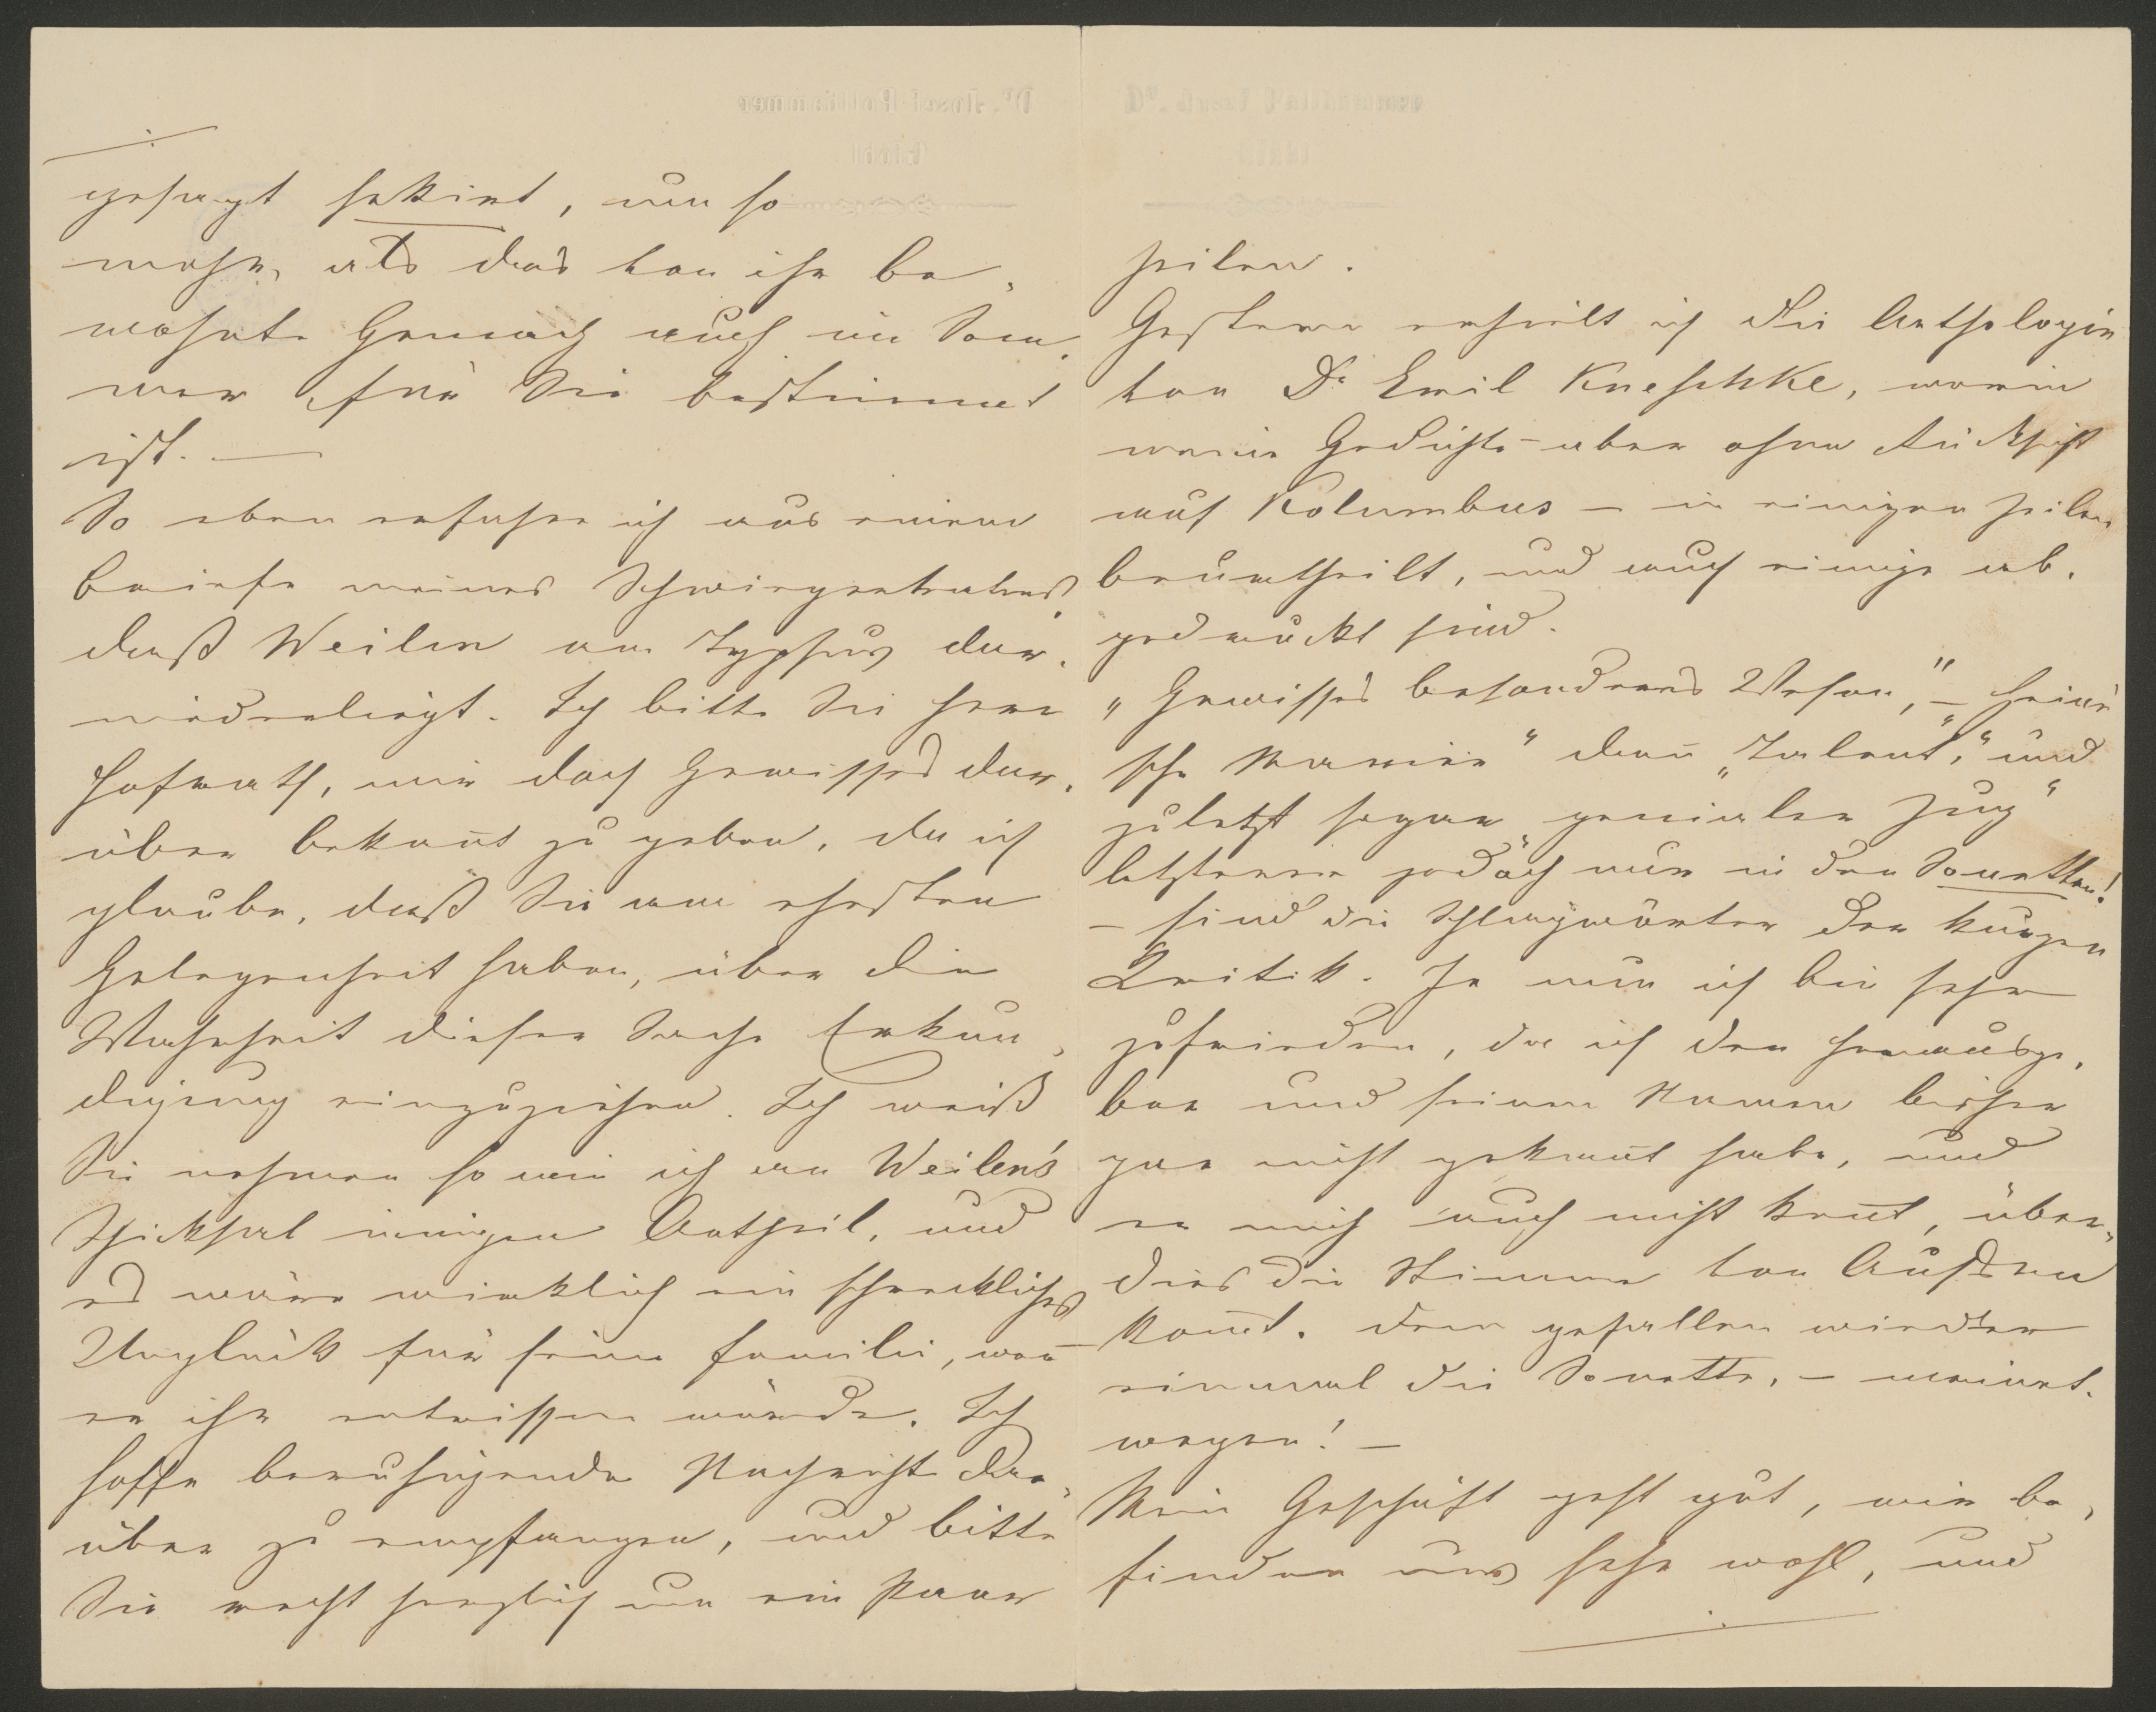 ./.
gesagt sekirt, um so
mehr, als das von ihr be-
wohnte Gemach auch im Som-
mer für Sie bestimmt
ist. —
So eben erfahre ich aus einem
Briefe meines Schwiegervaters,
daß Weilen am Typhus dar-
niederliegt. Ich bitte Sie Herr
Hofrath, mir doch Gewisses dar-
über bekannt zu geben, da ich
glaube, daß Sie am ehesten
Gelegenheit haben, über die
Wahrheit dieser Sache Erkun-
digung einzuziehen. Ich weiß
Sie nehmen so wie ich an Weilen's
Schicksal innigen Antheil, und
es wäre wirklich ein schreckliches
Unglück für seine Familie, wenn
er ihr entrissen würde. Ich
hoffe beruhigende Nachricht dar-
über zu empfangen, und bitte
Sie recht herzlich um ein Paar
Zeilen.
Gestern erhielt ich die Anthologie
von Dr Emil Kneschke, worin
meine Gedichte – aber ohne Rücksicht
auf Kolumbus – in einigen Zeilen
beurtheilt, und auch einige ab-
gedruckt sind.
"Gewisses besonderes Wesen," – Heine'
sche Manier" dann "Talent," und
zuletzt sogar "genialer Zug"
letzterer jedoch nur in den Sonetten!
– sind die Schlagwörter der kurzen
Kritik. Je nun ich bin sehr
zufrieden, da ich den Herausge-
ber und seinen Namen bisher
gar nicht gekannt habe, und
er mich auch nicht kennt, über-
dies die Stimme von Außen
kommt. Dem gefallen wieder
einmal die Sonette, – meinet-
wegen! –
Mein Geschäft geht gut, wir be-
finden uns sehr wohl, und
./.